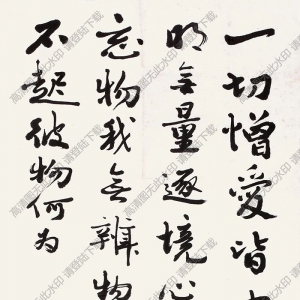 一切憎愛皆
明無量逐境心
忘物我無辨物
不起彼物何為